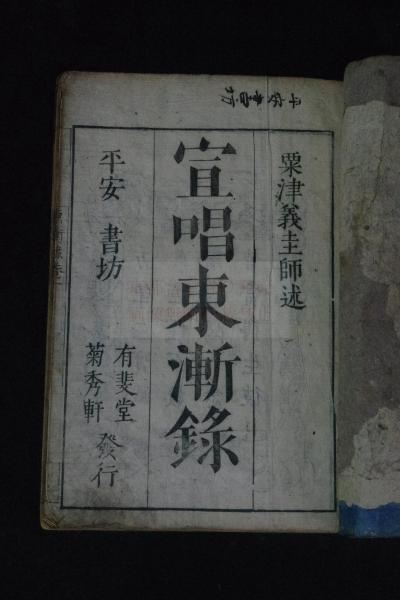 平安書坊
粟津義圭師述
宣唱東漸錄
平安 書坊
有斐堂
菊秀軒
發行